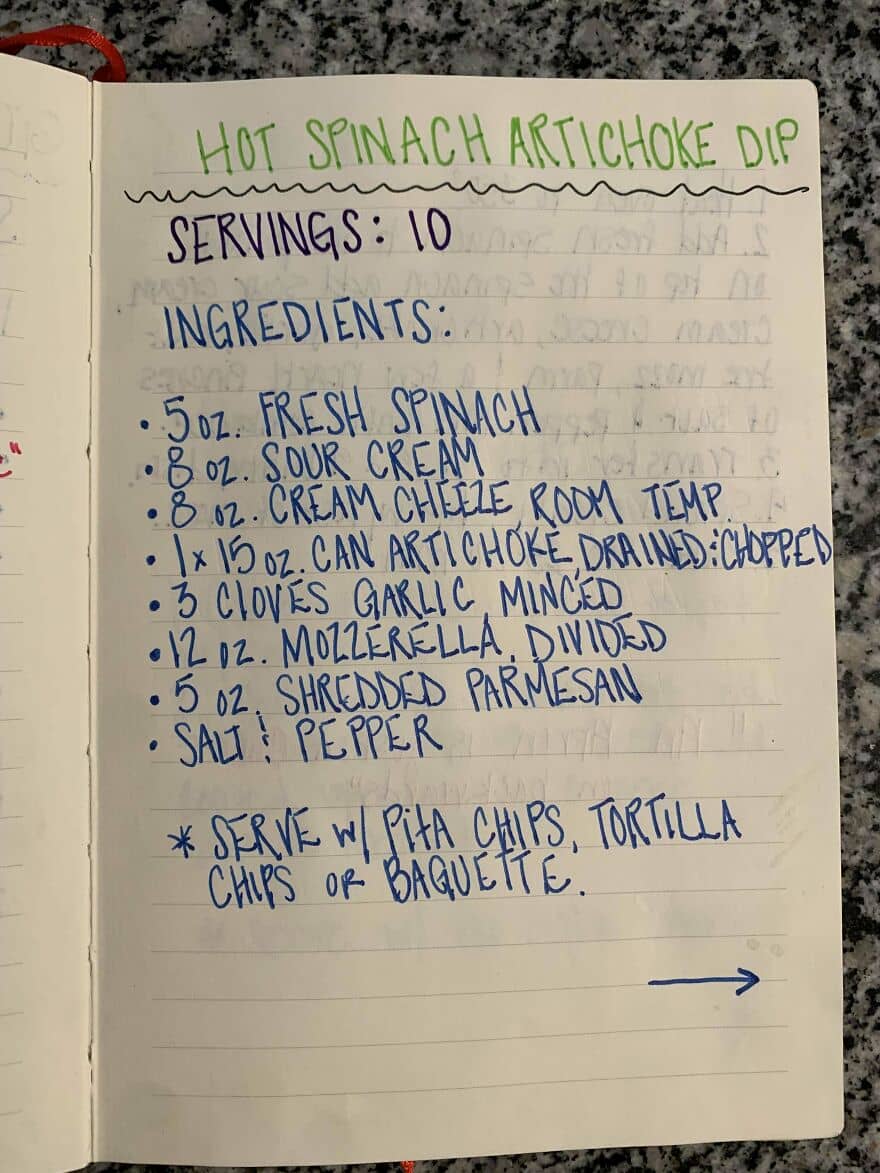 HOT SPINACH ARTICHOKE DIP
SERVINGS: 10
INGREDIENTS:
• 5 oz. FRESH SPINACH
• 8 oz. SOUR CREAM
• 8 oz. CREAM CHEEZE, ROOM TEMP.
• 1 x 15 oz. CAN ARTICHOKE, DRAINED & CHOPPED
• 3 CLOVES GARLIC, MINCED
• 12 oz. MOZZERELLA, DIVIDED
• 5 oz. SHREDDED PARMESAN
• SALT & PEPPER
* SERVE w/ PITA CHIPS, TORTILLA
CHIPS OR BAGUETTE.